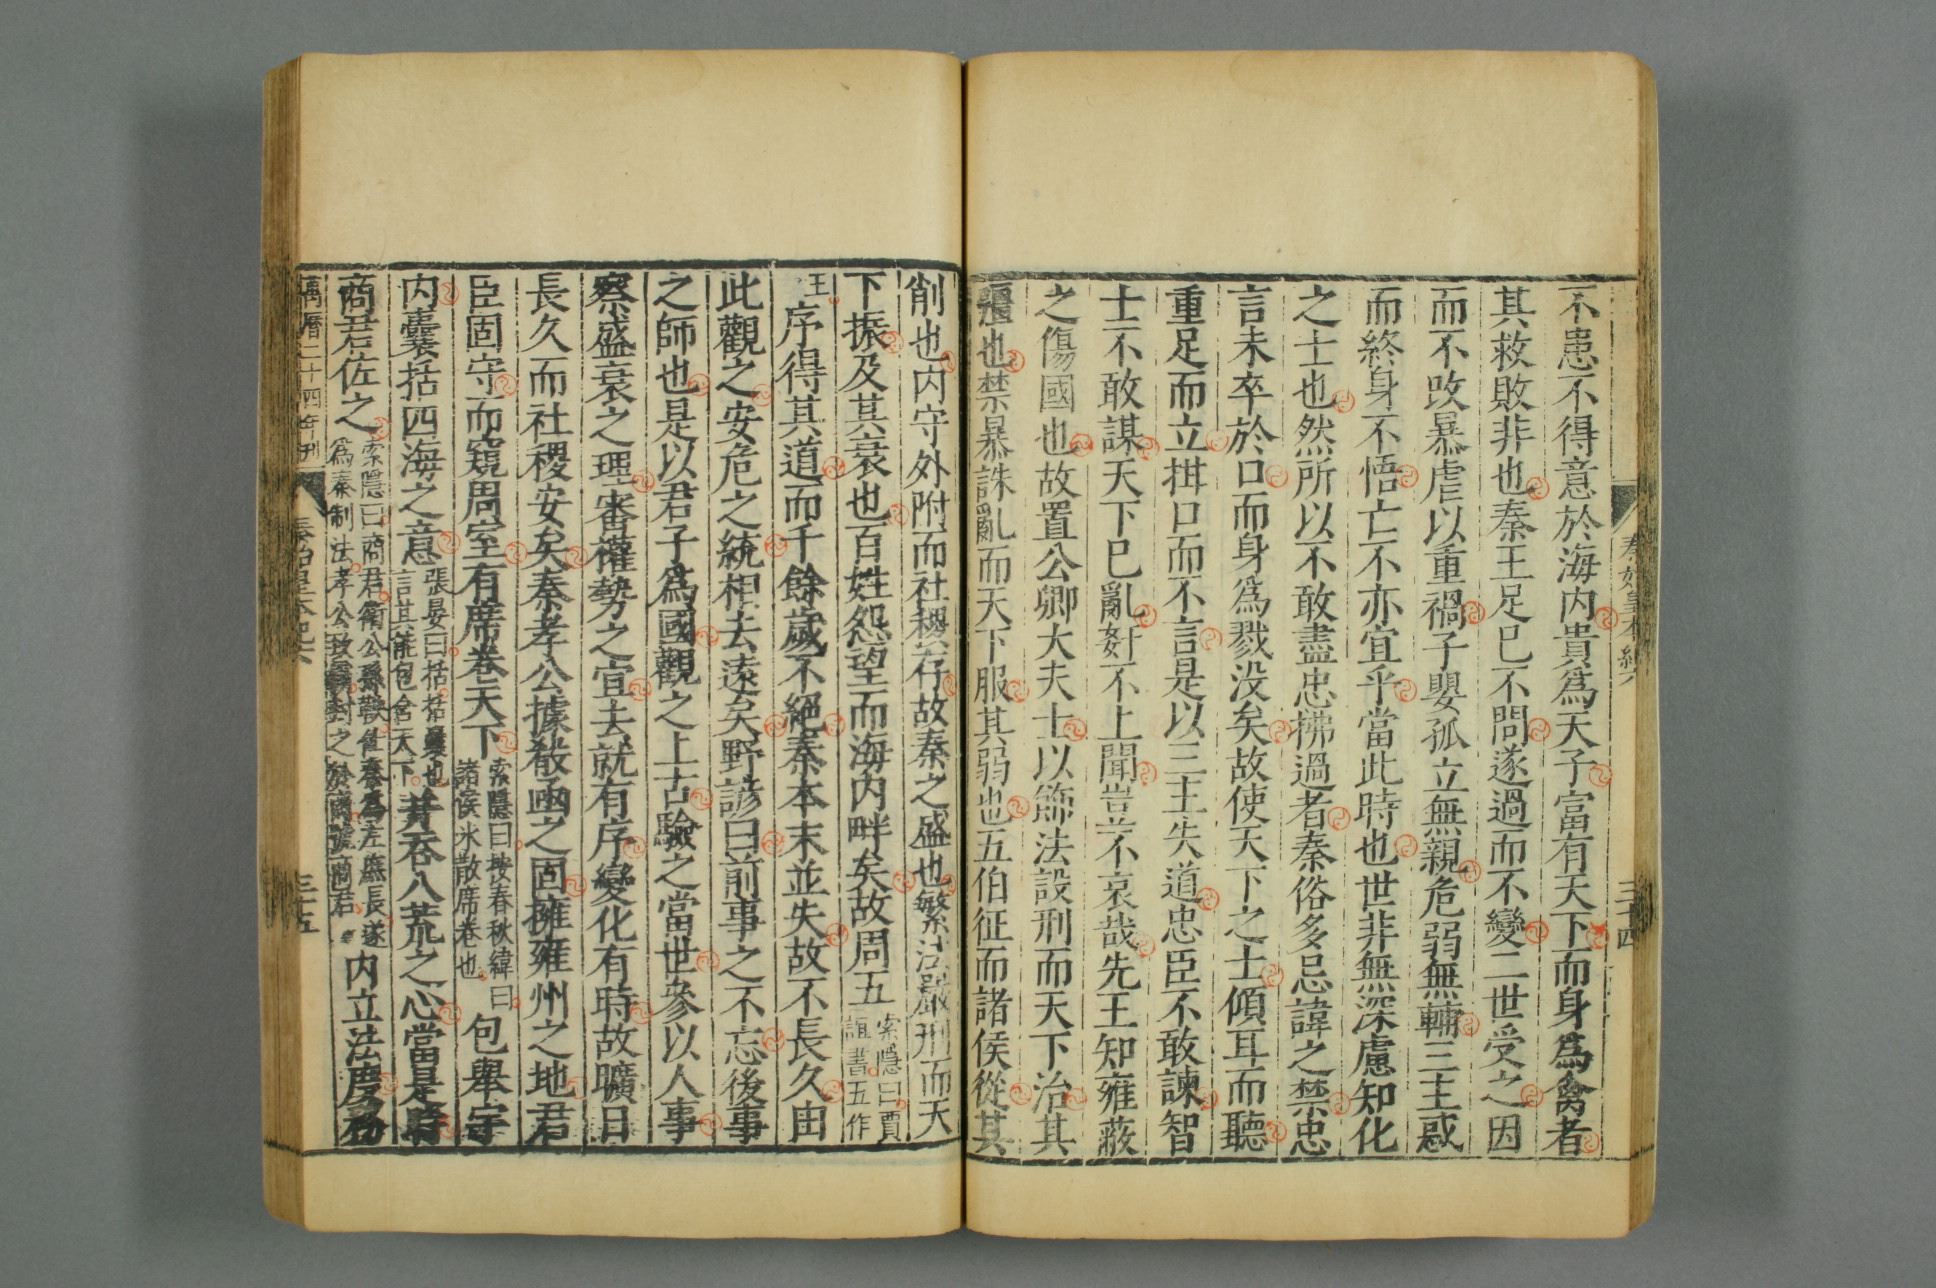 不患不得意於海内貴爲天子富有天下而身爲禽者
其救敗非也秦王足已不問遂過而不變二世受之因
而不改暴虐以重禍子嬰孤立無親危弱無輔三主惑
而終身不悟亡不亦宜乎當此時也世非無深慮知化
之士也然所以不敢盡忠拂過者秦俗多忌諱之禁忠
言未卒於口而身爲戮没矣故使天下之士傾耳而聽
重足而立拑口而不言是以三主失道忠臣不敢諫智
士不敢謀天下已亂姧不上聞豈不哀哉先王知雍蔽
之傷國也故置公卿大夫士以飾法設刑而天下治其
彊也禁暴誅亂而天下服其弱也五伯征而諸侯從其
削也内守外附而社稷存故秦之盛也繁法嚴刑而天
下振及其衰也百姓怨望而海内畔矣故周五
索隱曰賈
誼書五作
王
序得其道而千餘歲不絕秦本末並失故不長久由
此觀之安危之統相去遠矣野諺曰前事之不忘後事
之師也是以君子爲國觀之上古驗之當世參以人事
察盛衰之理審權勢之宜去就有序變化有時故曠日
長久而社稷安矣秦孝公據殽函之固擁雍州之地君
臣固守而窺周室有席卷天下
索隱曰按春秋緯曰
諸侯氷散席卷也
包舉宇
内囊括四海之意
張晏曰括括囊也
言其能包含天下
并吞八荒之心當是時
商君佐之
索隱曰商君衛公孫鞅仕秦爲左庶長遂
爲秦制法孝公致霸封之於商號商君
内立法度務
萬曆二十四年刊
秦始皇本紀六
三十五
秦始皇本紀六
三十四